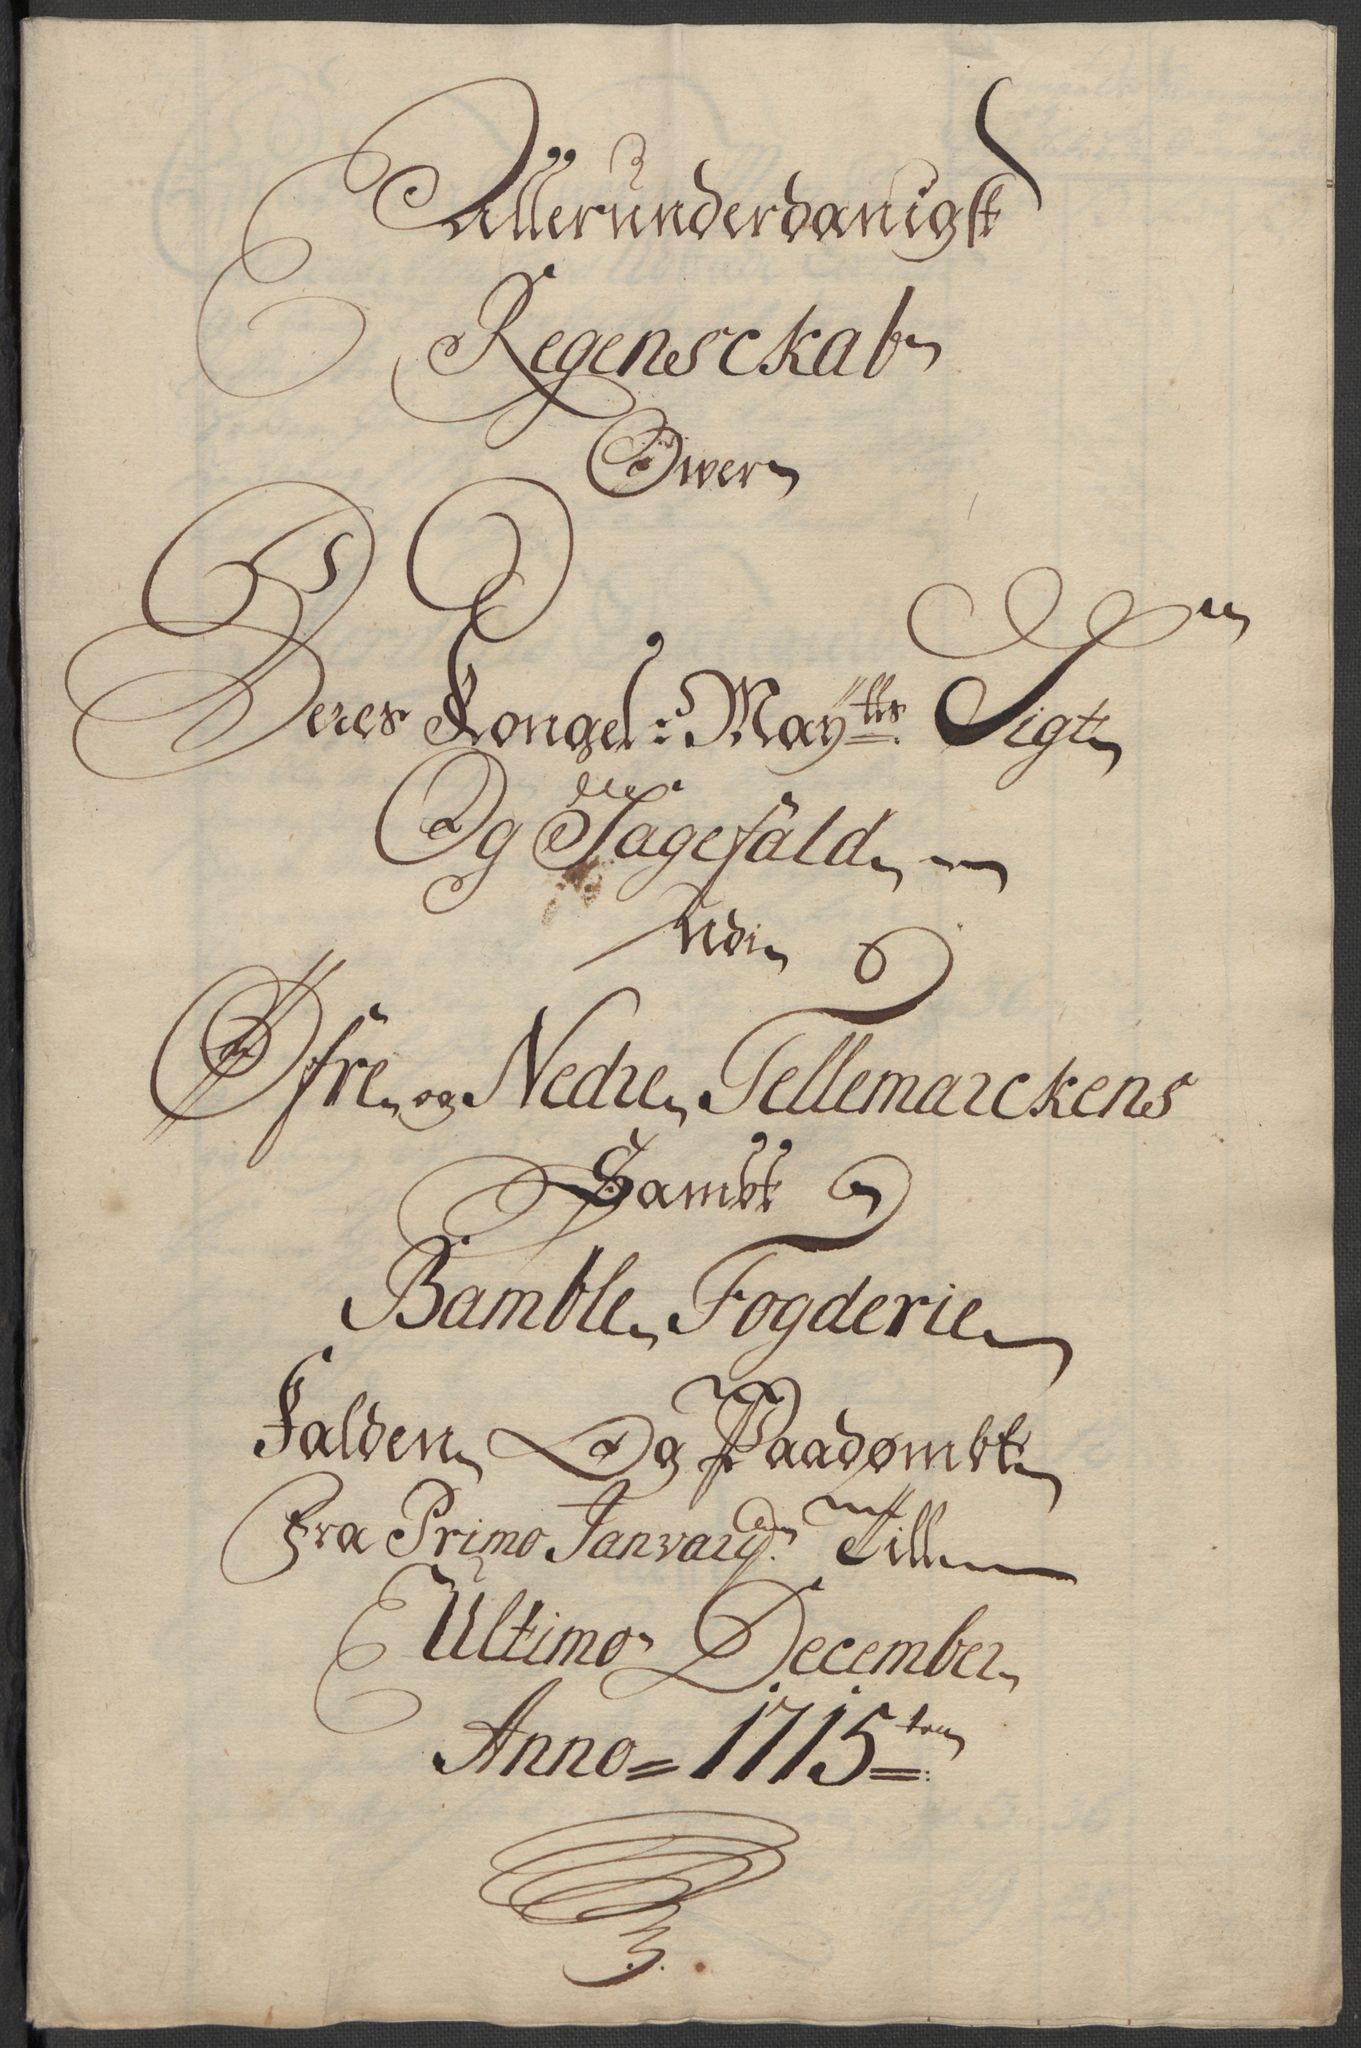 Allerunderdanigst
Regensckab
Over
Deres Kongel: Maytts Sigt
Og Sagefald
Udi
Øfre og Nedre Tellemarckens
Sambt
Bamble Fogderie
Falden Og Paadømbt
Fra Primo Janvarij Till
Ultimo December
Anno = 1715